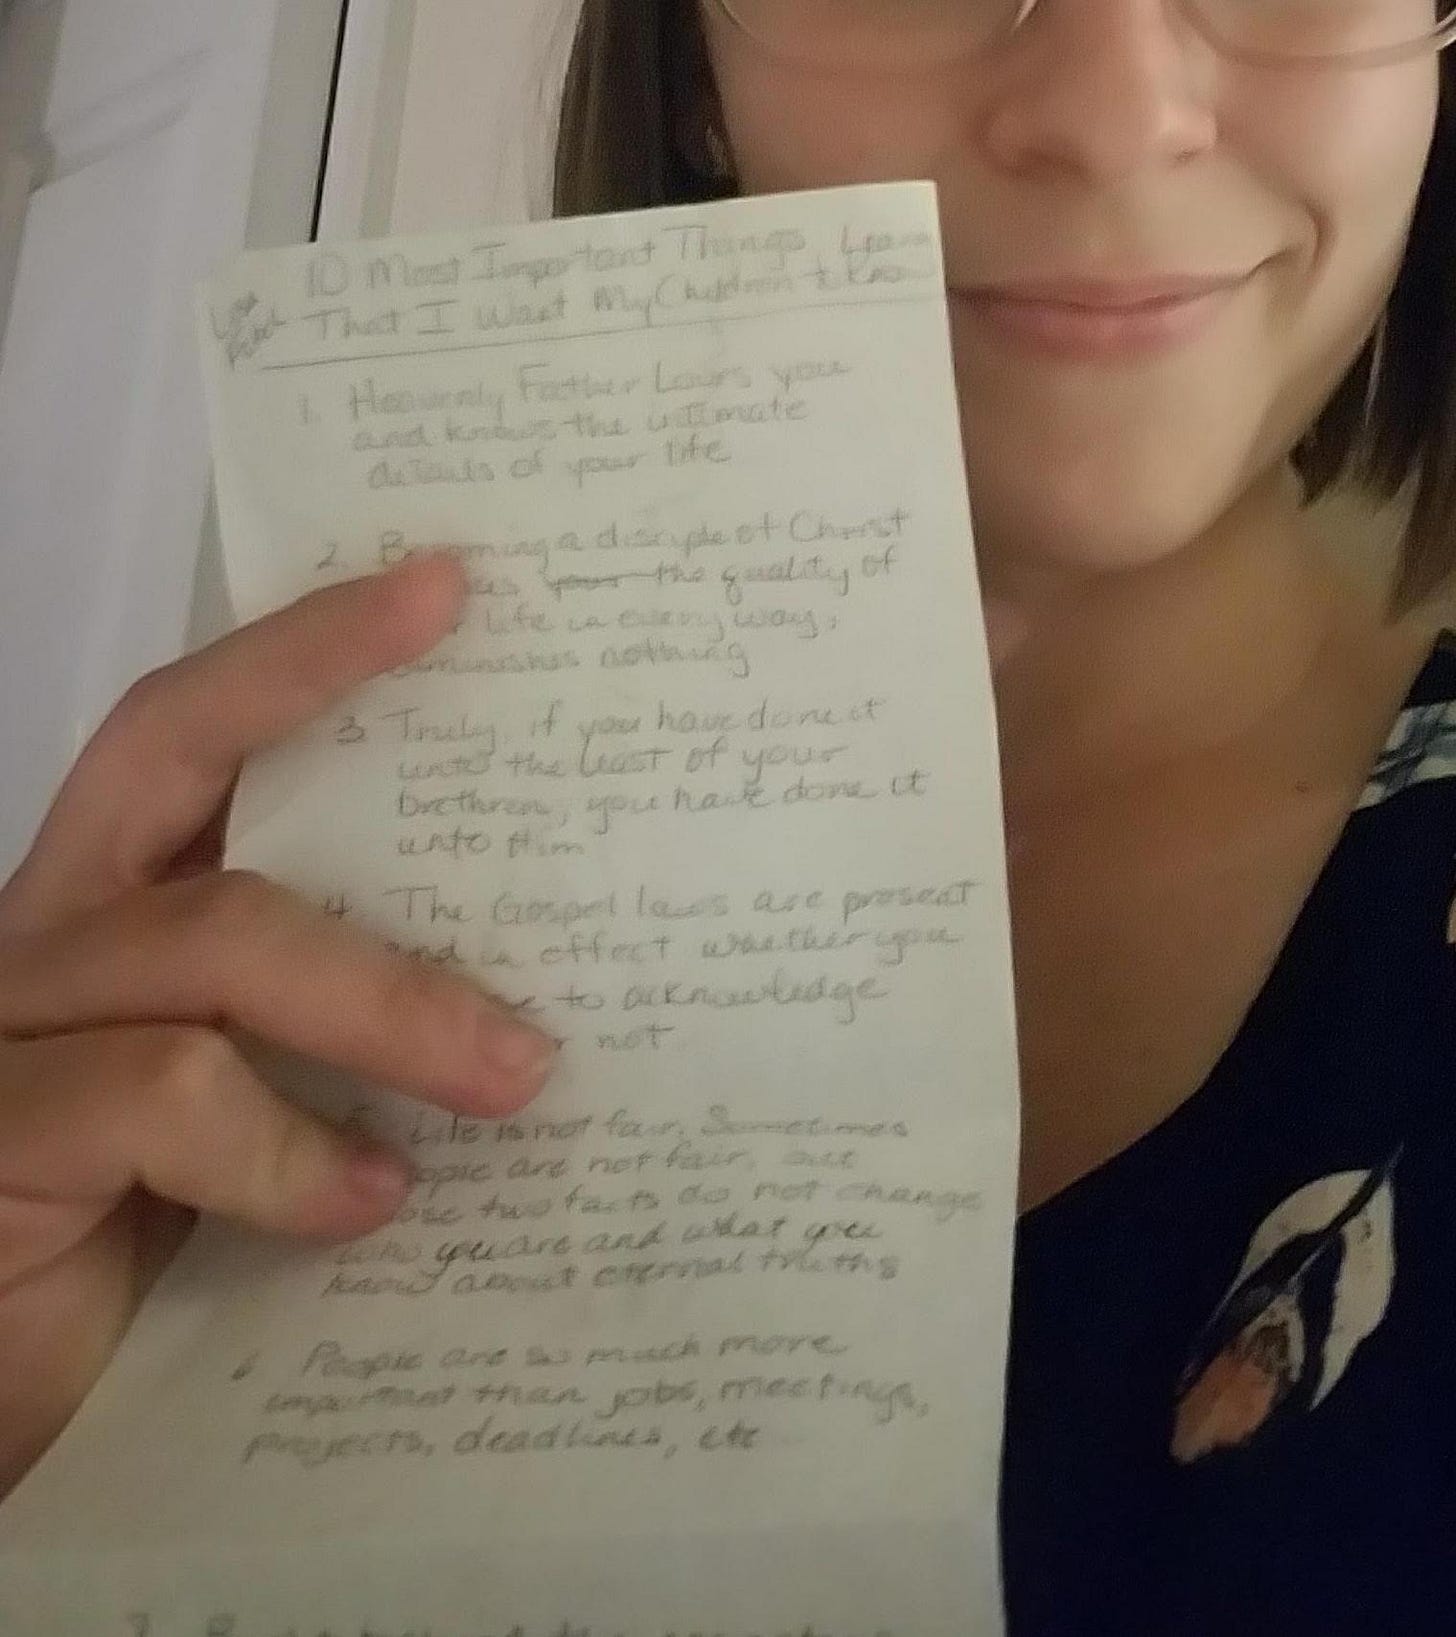 10 Most Important Things
That I Want My Children to Know
1. Heavenly Father Loves you
and knows the intimate
details of your life
2. Becoming a disciple of Christ
the quality of
life in every way,
diminishes nothing
3 Truly, if you have done it
unto the least of your
brethren, you have done it
unto Him
4 The Gospel laws are present
and in effect whether you
to acknowledge
or not
5 Life is not fair. Sometimes
people are not fair, but
those two facts do not change
who you are and what you
know about eternal truths
6 People are so much more
important than jobs, meetings,
projects, deadlines, etc
7